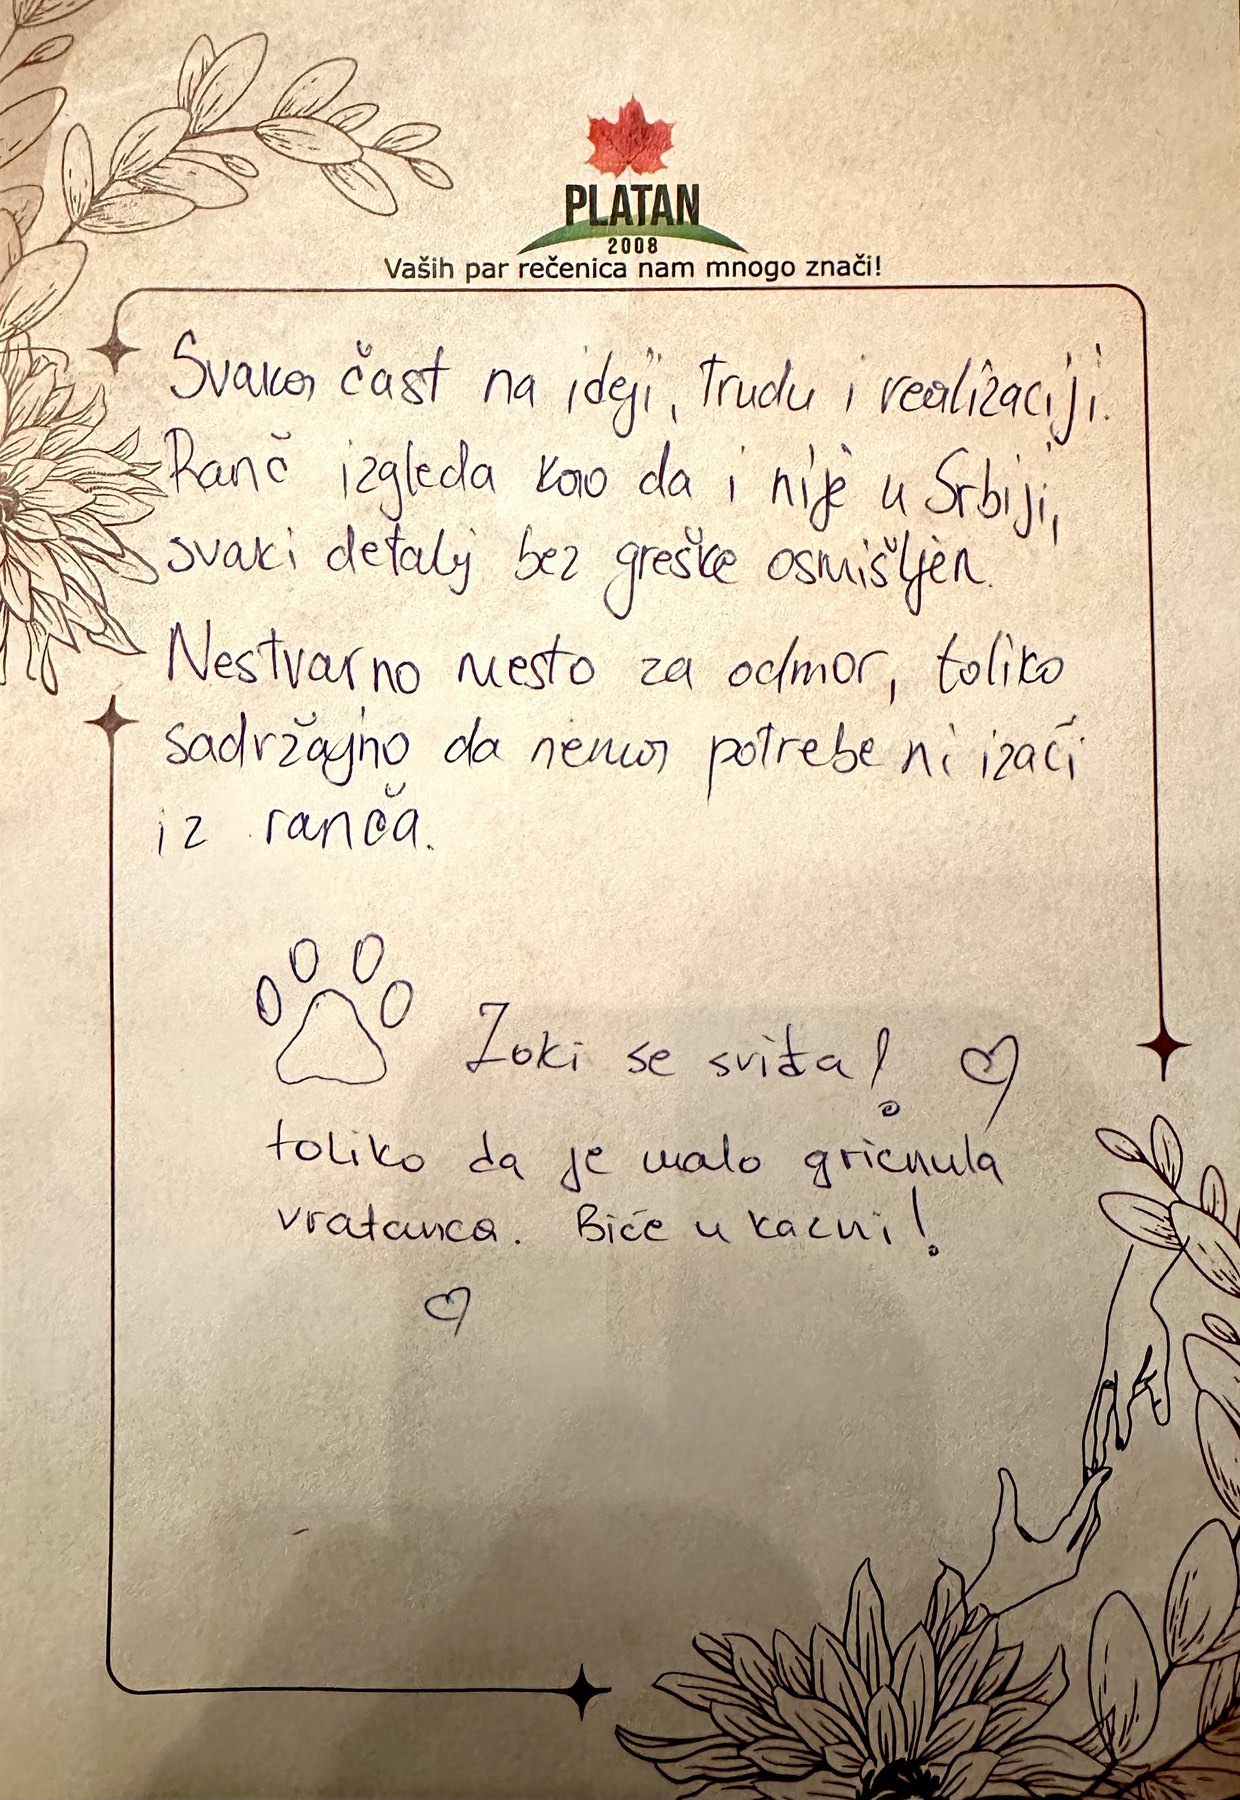 PLATAN
2008
Vaših par rečenica nam mnogo znači!
Svaka čast na ideji, trudu i realizaciji.
Ranč izgleda kao da i nije u Srbiji,
svaki detalj bez greške osmišljen.
Nestvarno mesto za odmor, toliko
sadržajno da nema potrebe ni izaći
iz ranča.
Zoki se sviđa!
toliko da je malo gricnula
vratanca. Biće u kazni!